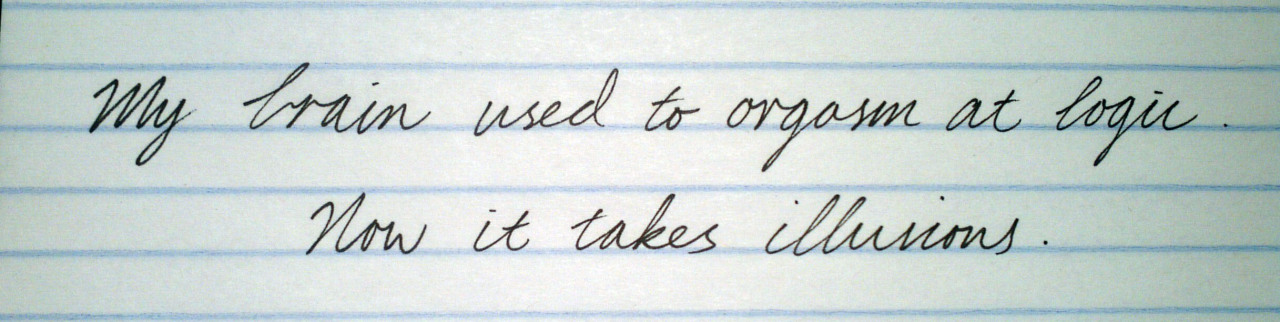 My brain used to orgasm at logic.
Now it takes illusions.